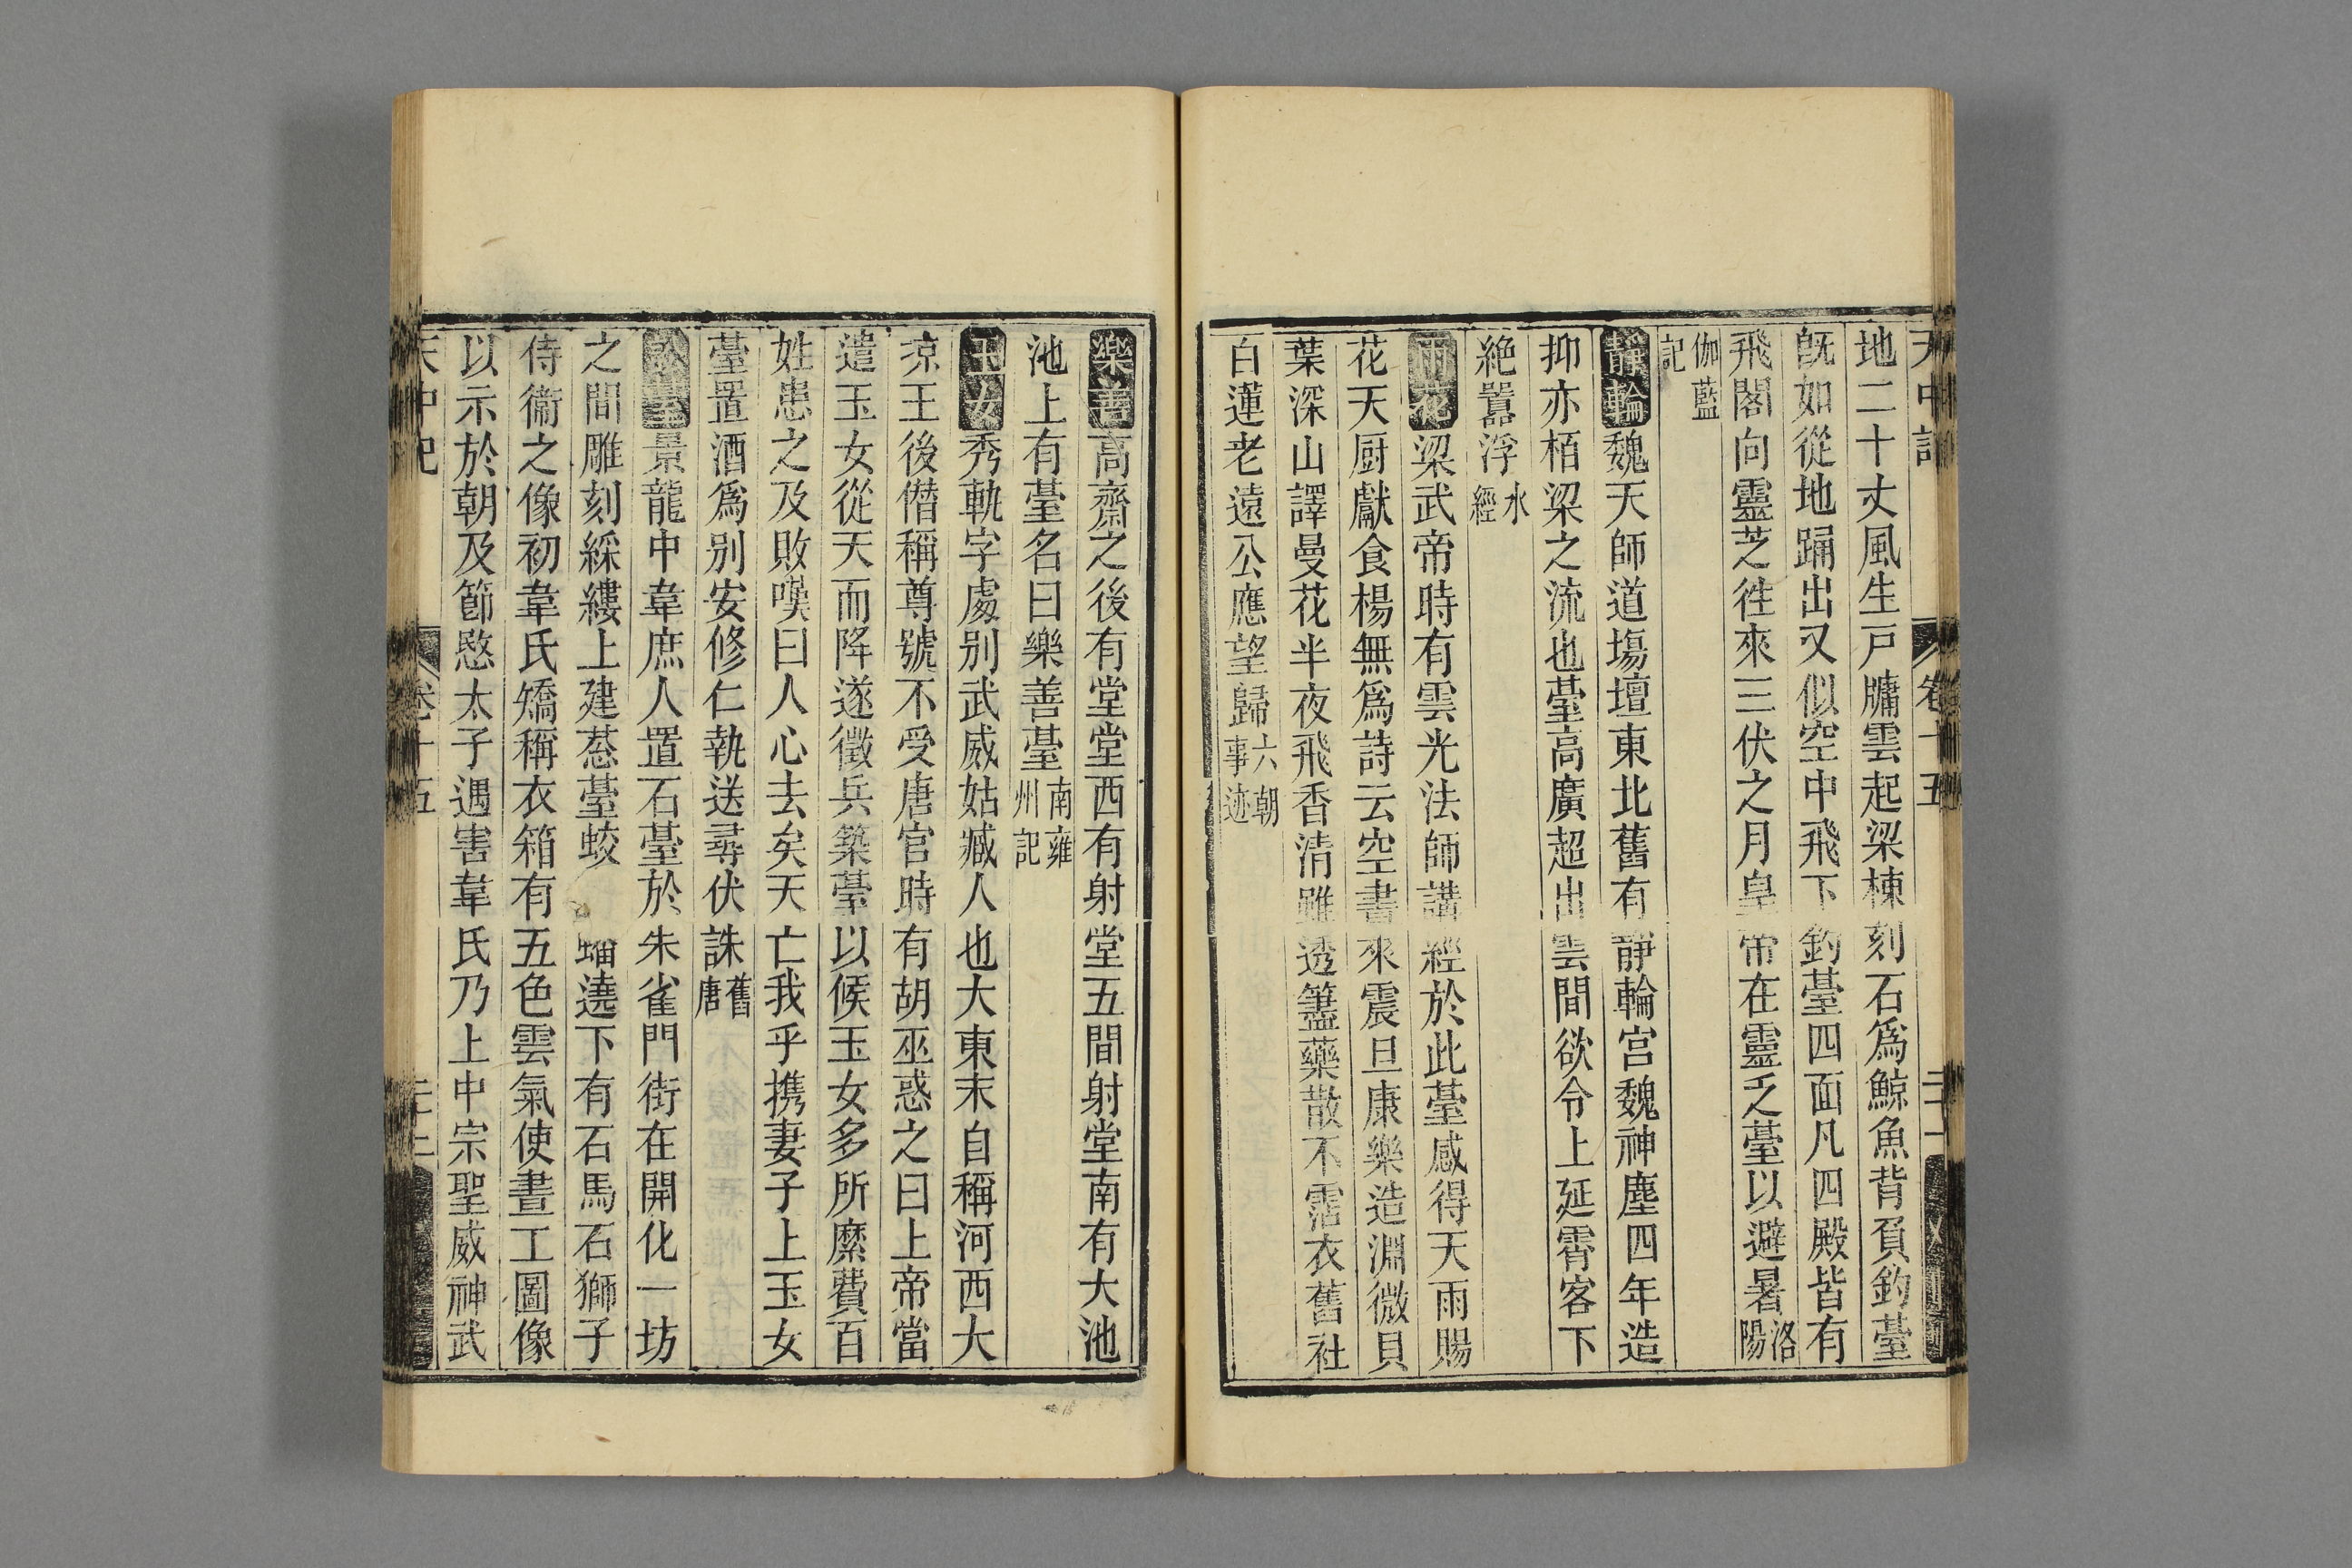 天中記 卷十五
地二十丈風生戸牖雲起梁棟刻石爲鯨魚背負釣臺
旣如從地踊出又似空中飛下釣臺四面凡四殿皆有
飛閣向靈芝徃來三伏之月皇帝在靈芝臺以避暑洛陽
伽藍記
靜輪魏天師道塲壇東北舊有靜輪宫魏神䴥四年造
抑亦栢梁之流也臺高廣超出雲間欲令上延霄客下
絶囂浮水經
雨花梁武帝時有雲光法師講經於此臺感得天雨賜
花天厨獻食楊無爲詩云空書來震旦康樂造淵微貝
葉深山譯曼花半夜飛香清雖透籩藥散不霑衣舊社
白蓮老遠公應望歸六朝事迹
樂善高齋之後有堂堂西有射堂五間射堂南有大池
池上有臺名曰樂善臺南雍州記
玉女秀軌字處别武威姑臧人也大東末自稱河西大
凉王後僣稱尊號不受唐官時有胡巫惑之曰上帝當
遣玉女從天而降遂徵兵築臺以候玉女多所縻費百
姓患之及敗嘆曰人心去矣天亡我乎攜妻子上玉女
臺置酒爲别安修仁執送尋伏誅舊唐
景龍中韋庶人置石臺於朱雀門街在開化一坊
之間雕刻綵縷上建蒼臺蛟螭遶下有石馬石獅子
侍衞之像初韋氏矯稱衣箱有五色雲氣使畫工圖像
以示於朝及節愍太子遇害韋氏乃上中宗聖威神武
天中記 卷十五